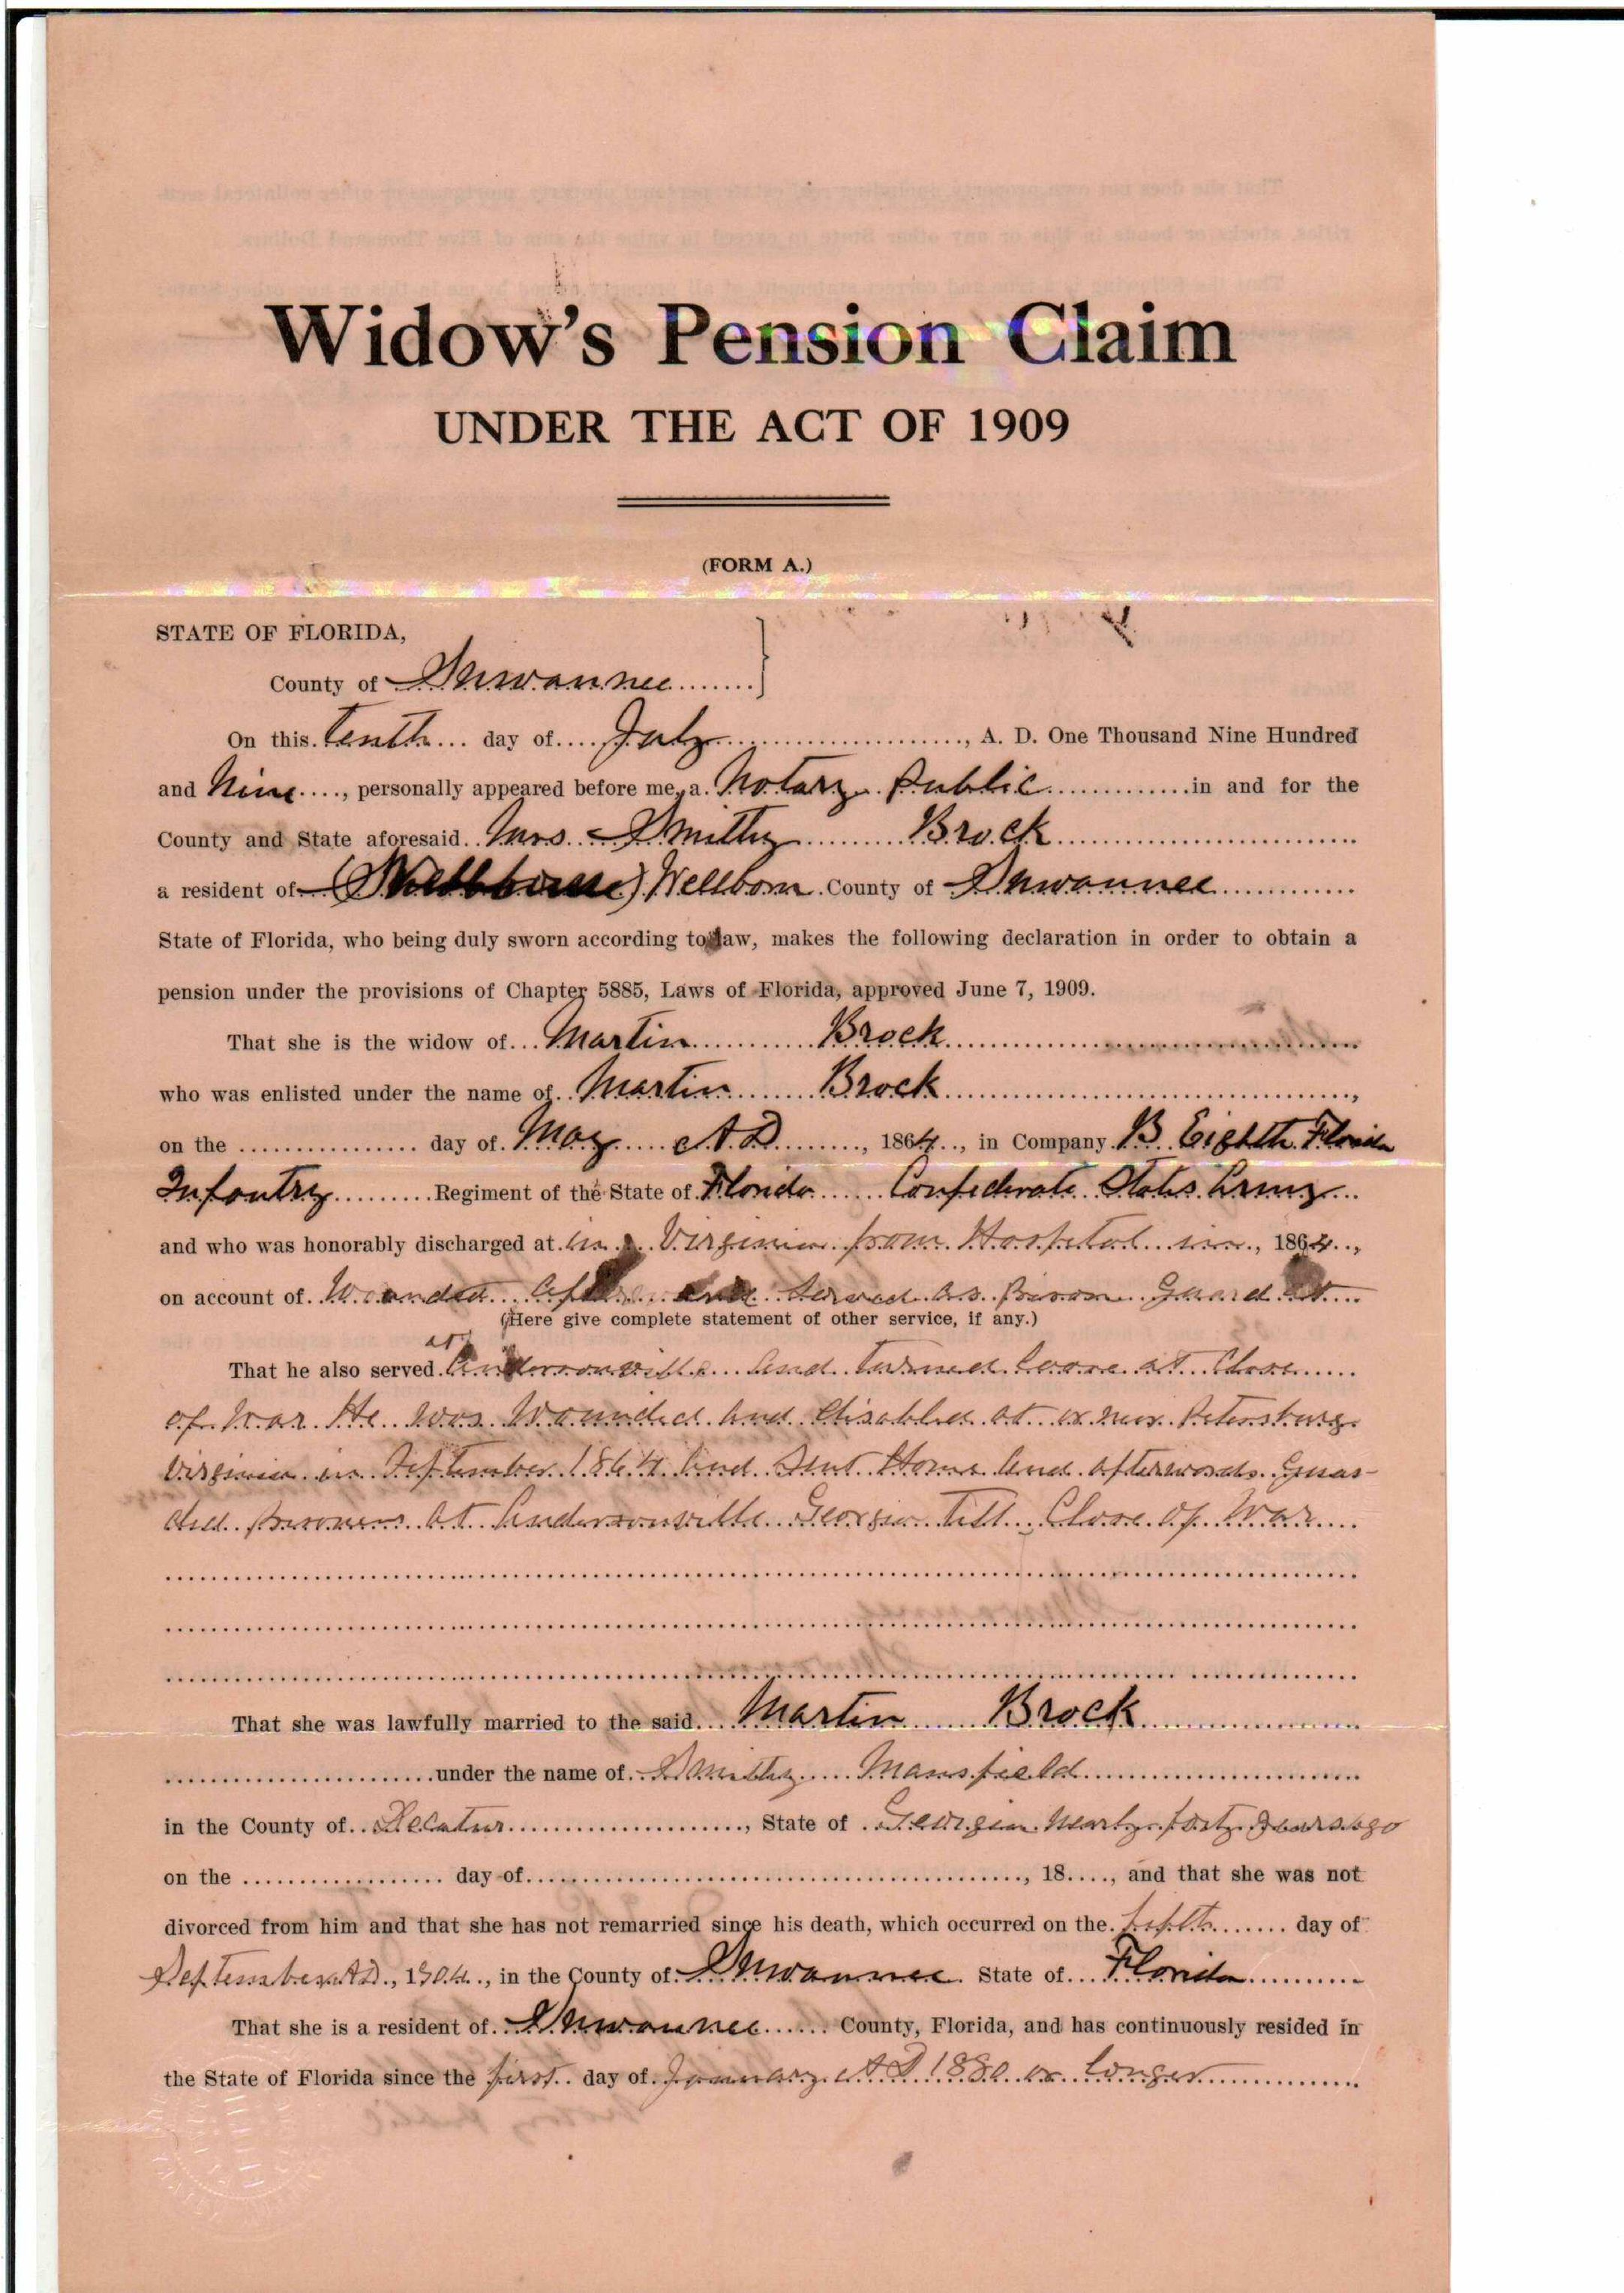 Widow's Pension Claim
UNDER THE ACT OF 1909
(FORM A.)
STATE OF FLORIDA,
County of Suwannee
On this tenth day of July, A. D. One Thousand Nine Hundred
and Nine, personally appeared before me, a Notary Public in and for the
County and State aforesaid Mrs. Smithy Brock
a resident of Wellborn County of Suwannee
State of Florida, who being duly sworn according to law, makes the following declaration in order to obtain a
pension under the provisions of Chapter 5885, Laws of Florida, approved June 7, 1909.
That she is the widow of Martin Brock
who was enlisted under the name of Martin Brock,
on the day of May A D, 1864, in Company B Eighth Florida
Infantry Regiment of the State of Florida Confederate States Army
and who was honorably discharged at in Virginia from Hospital in, 1864,
on account of Wounded after and Served as Prison Guard at
(Here give complete statement of other service, if any.)
at
That he also served Andersonville and turned loose at Close
of War He was Wounded and disabled at or near Petersburg
Virginia in September 1864 and Sent Home and afterwards Guar-
ded prisoners at Andersonville Georgia till Close of War
That she was lawfully married to the said Martin Brock
under the name of Smithy Mansfield
in the County of Decatur, State of Georgia nearly forty years ago
on the day of, 18, and that she was not
divorced from him and that she has not remarried since his death, which occurred on the fifth day of
September A D., 1904, in the County of Suwannee State of Florida
That she is a resident of Suwannee County, Florida, and has continuously resided in
the State of Florida since the first day of January A D 1880 or longer